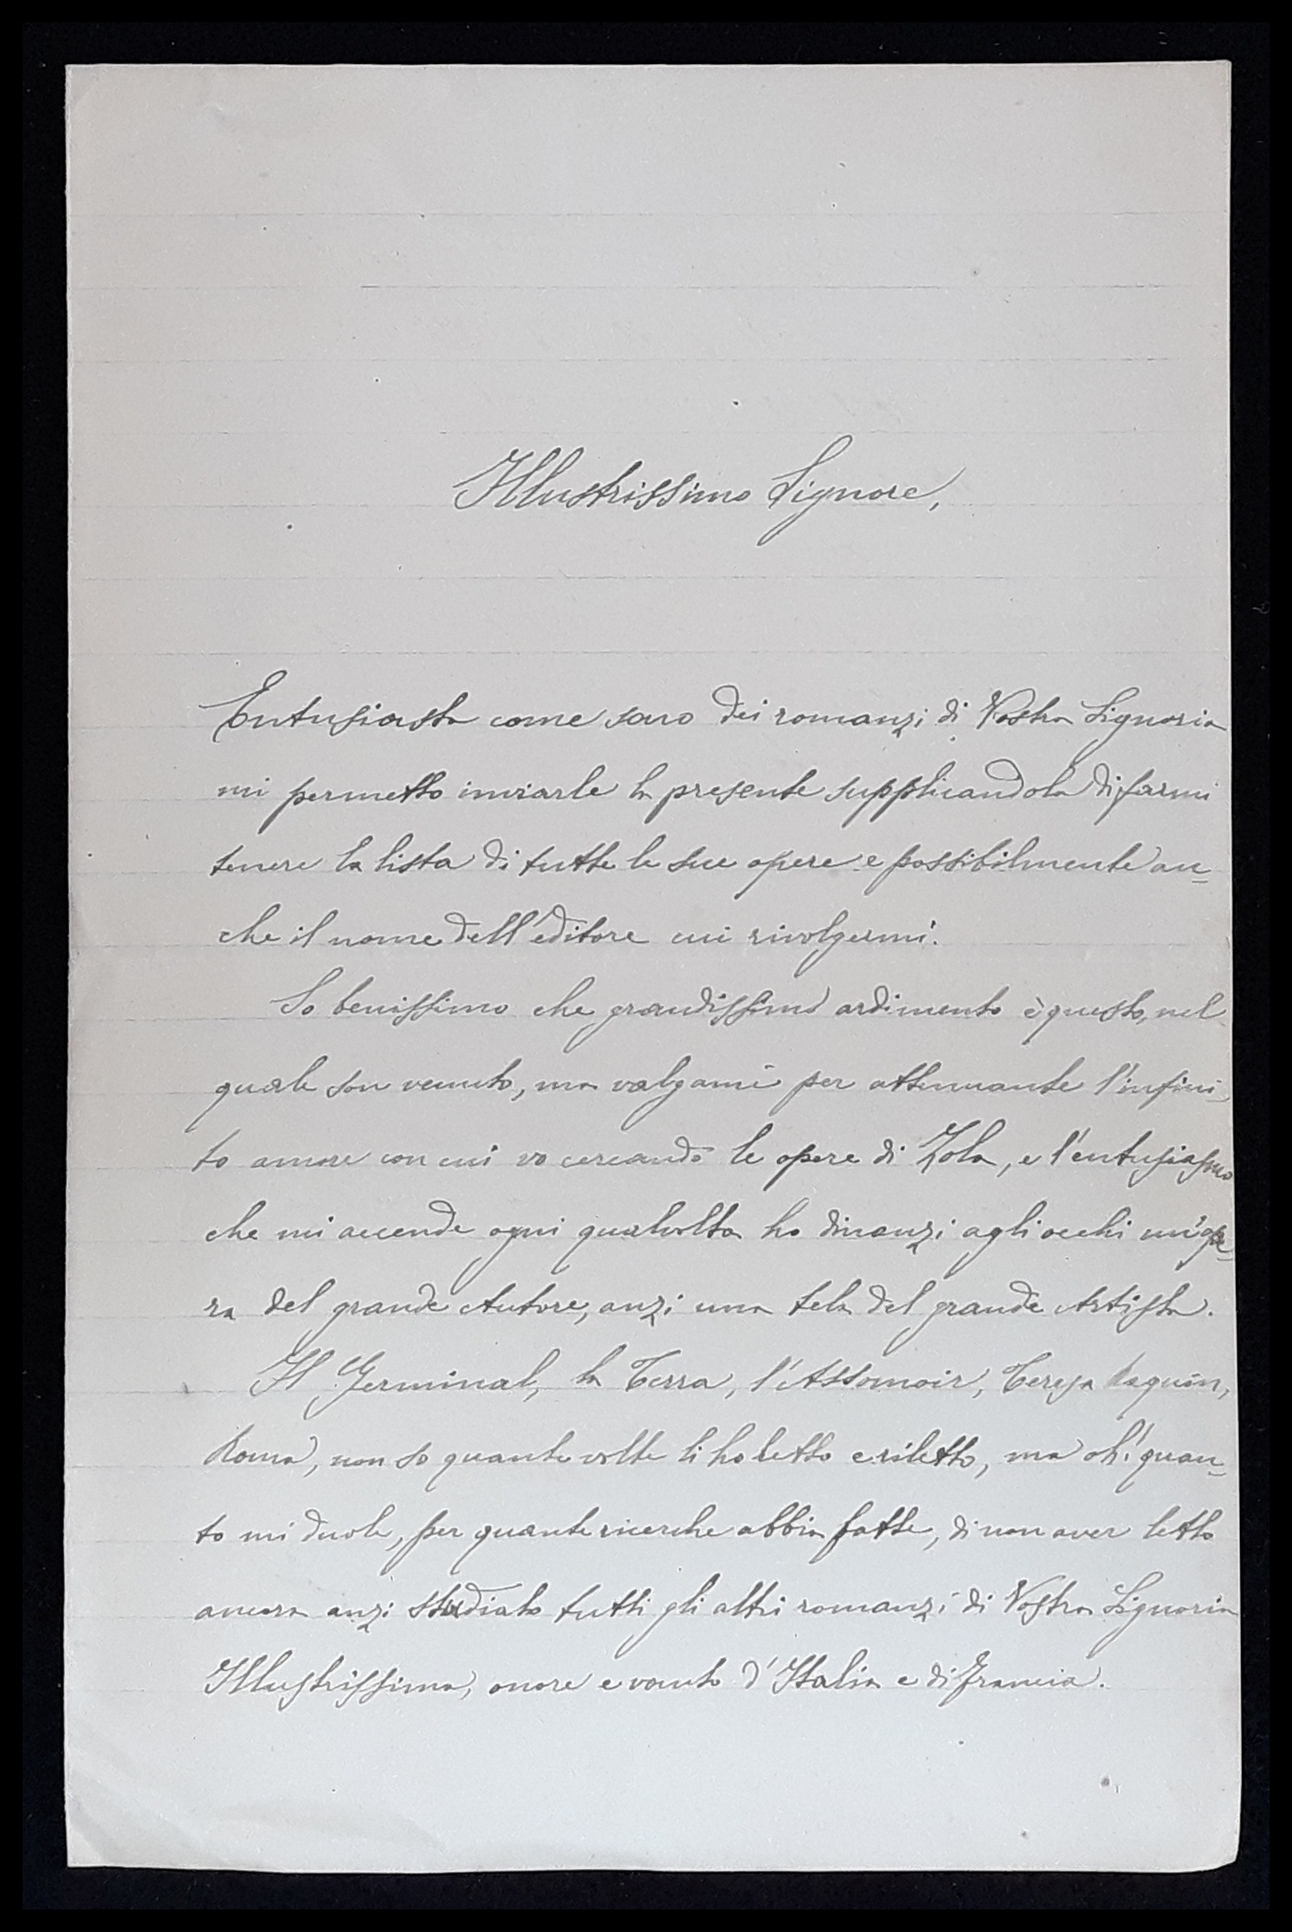 Illustrissimo Signore,
Entusiasta come sono dei romanzi di Vostra Signoria
mi permetto inviarle la presente supplicandola di farmi
tenere la lista di tutte le sue opere e possibilmente an-
che il nome dell'editore cui rivolgermi.
So benissimo che grandissimo ardimento è questo, nel
quale son venuto, ma valgami per attenuante l'infini-
to amore con cui vo cercando le opere di Zola, e l'entusiasmo
che mi accende ogni qualvolta ho dinanzi agli occhi un'ope-
ra del grande Autore, anzi una tela del grande Artista.
Il Germinal, la Terra, l'Assomoir, Teresa Raquin,
Roma, non so quante volte li ho letto e riletto, ma oh! quan-
to mi duole, per quante ricerche abbia fatte, di non aver letto
ancora anzi studiato tutti gli altri romanzi di Vostra Signoria
Illustrissima, onore e vanto d'Italia e di Francia.